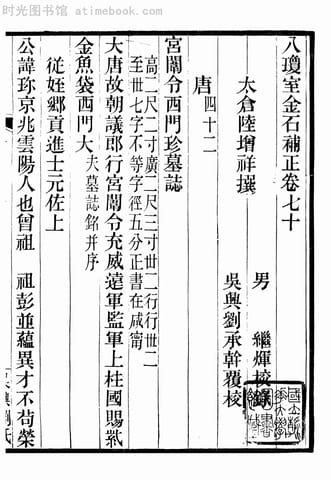 时光图书馆 - atimebook.com
八瓊室金石補正卷七十
太倉陸增祥撰
男 繼煇校錄
吳興劉承幹覆校
唐四十二
宮闈令西門珍墓誌
高二尺二寸廣二尺三寸卅二行行卅二
至卅七字不等字徑五分正書在咸甯
大唐故朝議郎行宮闈令充威遠軍監軍上柱國賜紫
金魚袋西門大夫墓誌銘并序
從姪鄉貢進士元佐上
公諱珍京兆雲陽人也曾祖 祖彭並蘊異才不苟榮